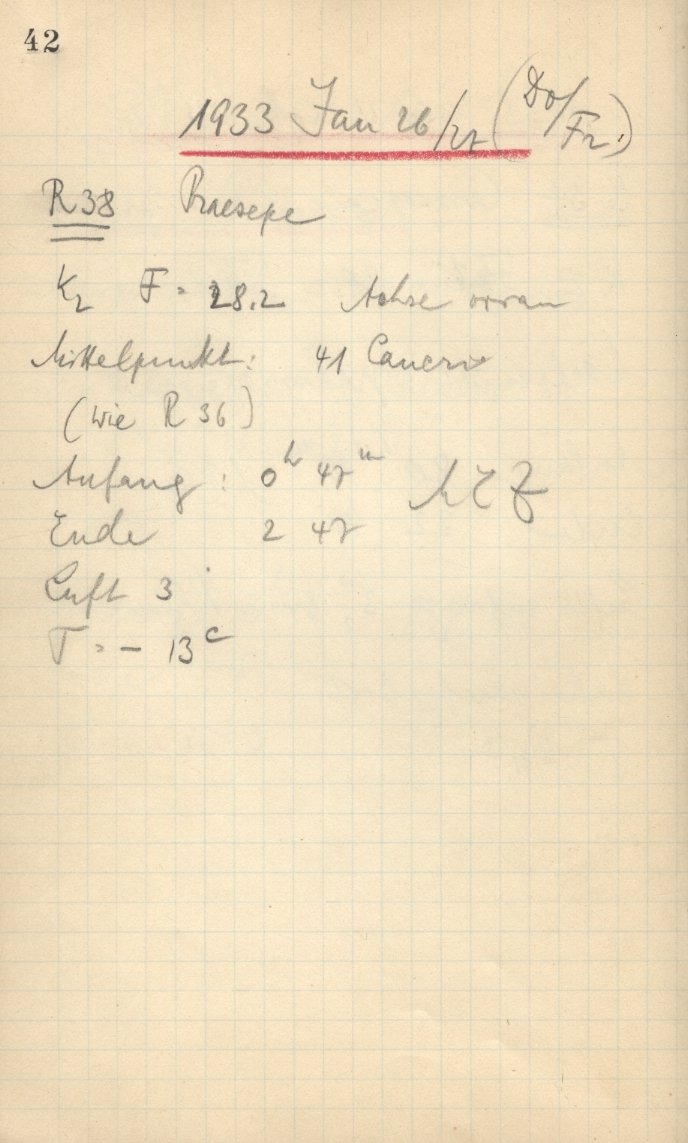 42
1933 Jan 26/27 (Do/Fr.)
R38 Praesepe
K2 F = 28.2 Achse voran
Mittelpunkt: 41 Cancri
(wie R 36)
Anfang : 0h 47m MEZ
Ende 2 47
Luft 3
T = - 13 C